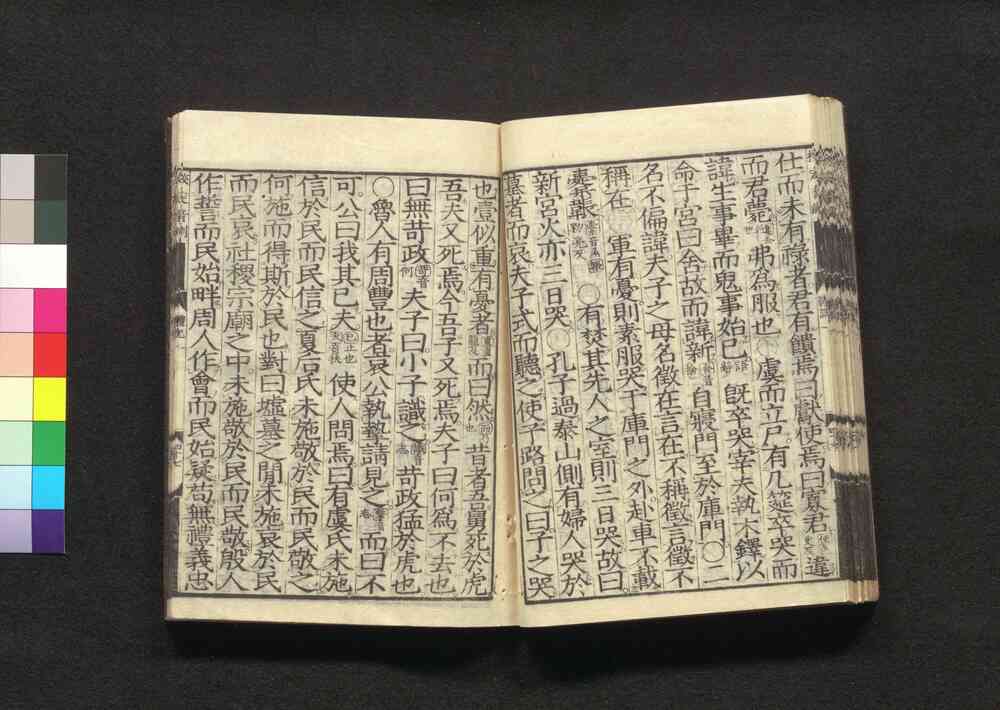 仕而未有祿者君有饋焉曰獻使焉曰寡君違
而君薨弗為服也虞而立尸有几筵卒哭而
諱生事畢而鬼事始已既卒哭宰夫執木鐸以
命于宮曰舍故而諱新自寢門至於庫門〇二
名不偏諱夫子之母名徵在言在不稱徵言徵不
稱在軍有憂則素服哭于庫門之外赴車不載
橐韔〇有焚其先人之室則三日哭故曰
新宮火亦三日哭〇孔子過泰山側有婦人哭於
墓者而哀夫子式而聽之使子路問之曰子之哭
也壹似重有憂者而曰然昔者吾舅死於虎
吾夫又死焉今吾子又死焉夫子曰何為不去也
曰無苛政夫子曰小子識之苛政猛於虎也
〇魯人有周豐也者哀公執摯請見之而曰不
可公曰我其已夫使人問焉曰有虞氏未施
信於民而民信之夏后氏未施敬於民而民敬之
何施而得斯於民也對曰墟墓之閒未施哀於民
而民哀社稷宗廟之中未施敬於民而民敬殷人
作誓而民始畔周人作會而民始疑苟無禮義忠